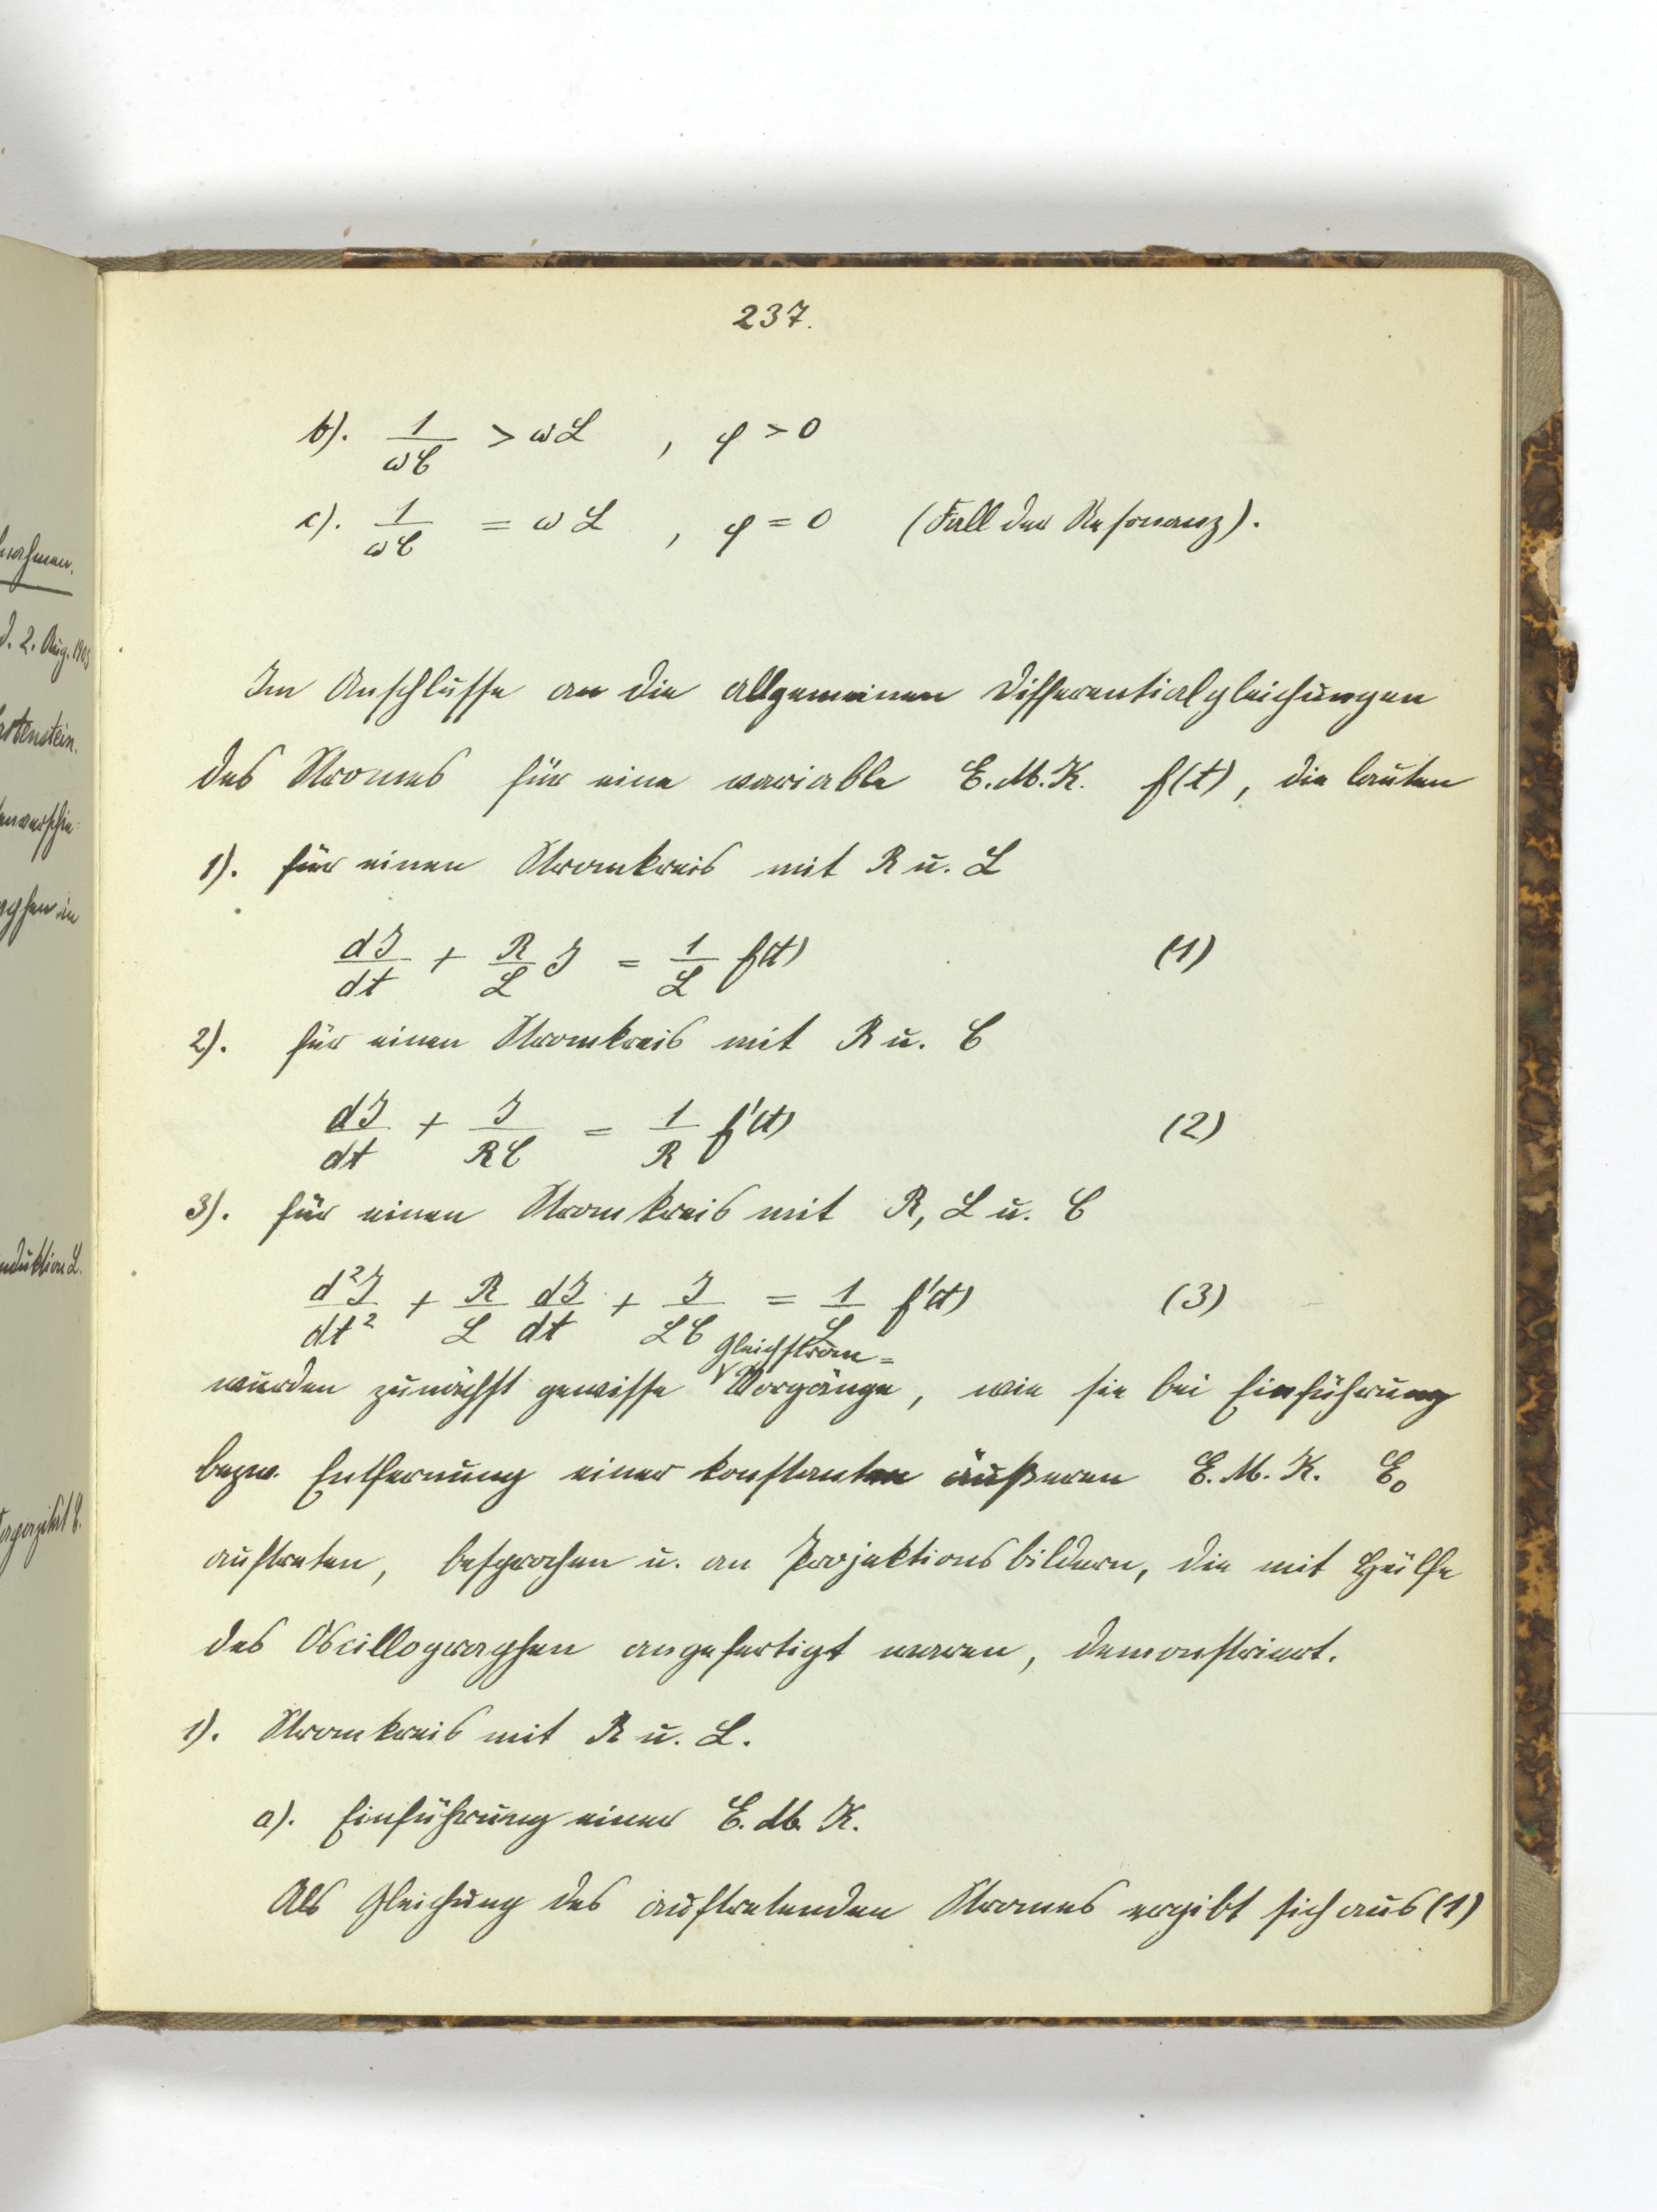 237.
b). 1/ωC > ωL , φ > 0
c). 1/ωC = ωL , φ = 0 (Fall der Resonanz).
Im Anschlusse an die allgemeinen Differentialgleichungen
des Stromes für eine variable E.M.K. f(t), die lauten
1). für einen Stromkreis mit R u. L
dJ/dt + R/L J = 1/L f(t) (1)
2). für einen Stromkreis mit R u. C
dJ/dt + J/RC = 1/R f'(t) (2)
3). für einen Stromkreis mit R, L u. C
d²J/dt² + R/L dJ/dt + J/LC = 1/L f'(t) (3)
Gleichstrom=
wurden zunächst gewisse Vorgänge, wie sie bei Einführung
bezw. Entfernung einer konstanten äußeren E. M. K. E₀
auftreten, besprochen u. an Projektionsbildern, die mit Hülfe
des Oscillographen angefertigt waren, demonstriert.
1). Stromkreis mit R u. L.
a). Einführung einer E. M. K.
Als Gleichung des auftretenden Stromes ergibt sich aus (1)
nahmen.
d. 2. Aug. 1905
tenstein.
duktion L.